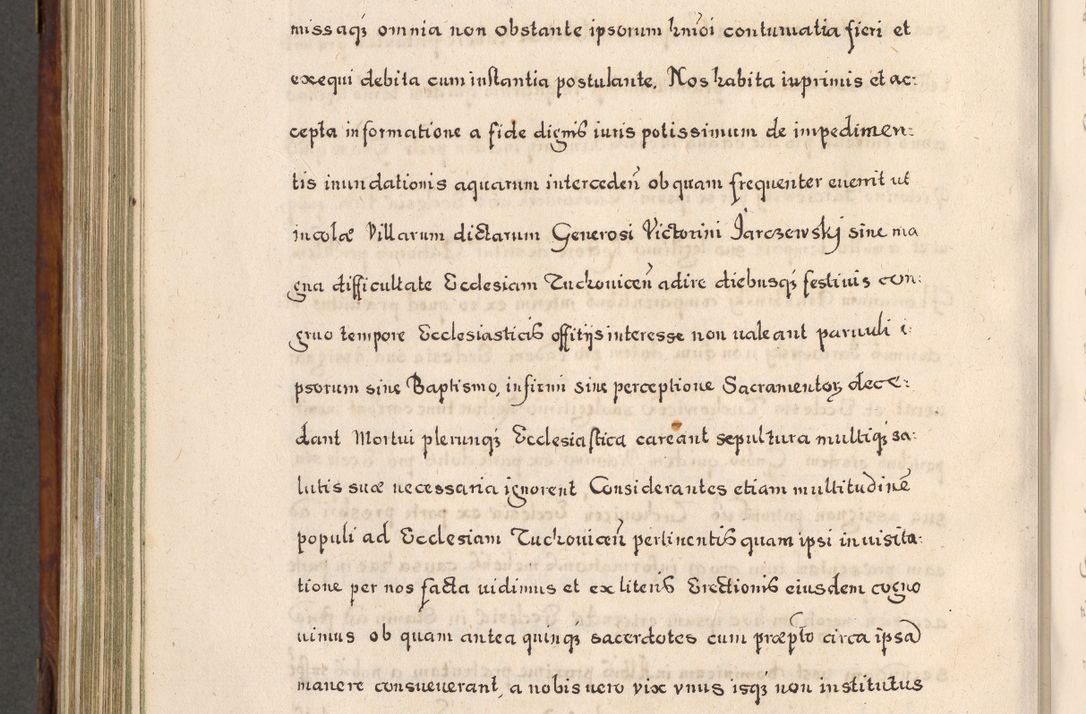 missaqꝫ omnia non obstante ipsorum hm̃oi contumatia fieri et
exequi debita cum instantia postulante, Nos habita inprimis et ac:
cepta informatione a fide dignis iuris potissimum de impedimen:
tis inundationis aquarum interceden̄ ob quam frequenter euenit ut
incolæ Villarum dictarum Generosi Victorini Jarczewskj sine ma
gna difficultate Ecclesiam Tuchouicen̄ adire diebusqꝫ festiuis con:
gruo tempore Ecclesiasticis offitijs interesse non ualeant paruuli i:
psorum sine Baptismo, infirmi sine perceptione Sacramentoꝝ dece:
dant Mortui plerunqꝫ Ecclesiastica careant sepultura multiqꝫ sa:
lutis suæ necessaria ignorent Considerantes etiam multitudinē
populi ad Ecclesiam Tuchouicen̄ pertinentis quam ipsi in uisita:
tione per nos facta uidimus et ex literis Erectionis eiusdem cogno
uimus ob quam antea quinqꝫ sacerdotes cum præpto circa ipsā
manere consueuerant, a nobis uero vix vnus isqꝫ non institutus